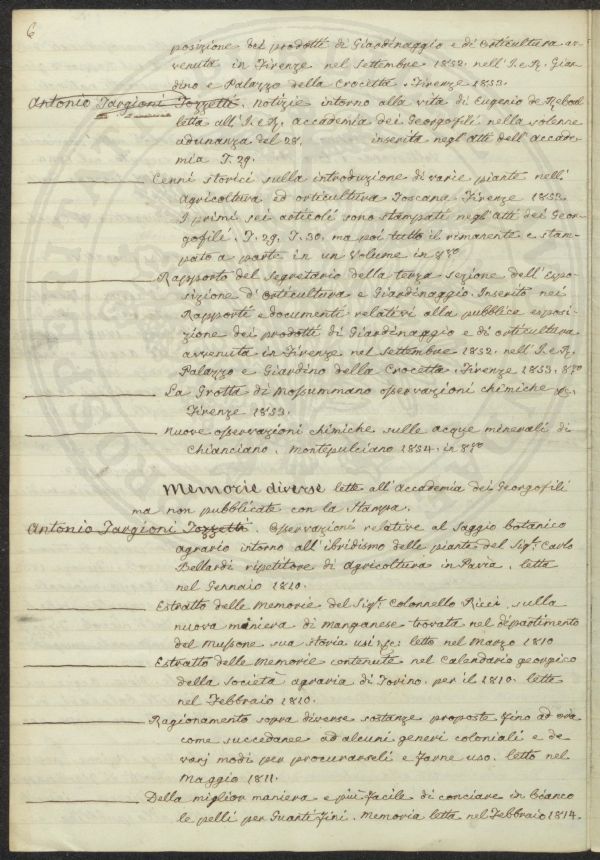 6
posizione dei prodotti di Giardinaggio e di Orticultura av-
venuta in Firenze nel Settembre 1852. nell'I. e R. Giar-
dino e Palazzo della Crocetta. Firenze 1853.
Antonio Targioni Tozzetti. Notizie intorno alla vita di Eugenio de Reboul
letta all'I. e R. accademia dei Georgofili nella solenne
adunanza del 28. inserita negl'atti dell'accade-
mia T. 29.
Cenni storici sulla introduzione di varie piante nell'
agricoltura ed orticultura Toscana. Firenze 1853
I primi sei articoli sono stampati negl'atti dei Geor-
gofili. T. 29, T. 30. ma poi tutto il rimanente e stam-
pato a parte in un volume in 8vo
Rapporto del Segretario della terza Sezione dell'Espo-
sizione d'Orticultura e Giardinaggio. Inserito nei
Rapporti e documenti relativi alla pubblica esposi-
zione dei prodotti di Giardinaggio e di orticultura
avvenuta in Firenze nel Settembre 1852. nell'I. e R.
Palazzo e Giardino della Crocetta. Firenze 1853. 8vo
La Grotta di Monsummano osservazioni chimiche &.
Firenze 1853.
Nuove osservazioni chimiche sulle acque minerali di
Chianciano. Montepulciano 1854. in 8vo
Memorie diverse lette all'Accademia dei Georgofili
ma non pubblicate con la Stampa.
Antonio Targioni Tozzetti. Osservazioni relative al Saggio botanico
agrario intorno all'ibridismo delle piante del Sigr. Carlo
Bellardi ripetitore di Agricoltura in Pavia. letta
nel Gennaio 1810.
Estratto delle Memorie del Sigr. Colonnello Ricci, sulla
nuova miniera di manganese trovata nel dipartimento
del Mussone sua storia usi &c: letto nel Marzo 1810
Estratto delle Memorie contenute nel Calendario georgico
della Società agraria di Torino. per il 1810. letto
nel Febbraio 1810.
Ragionamento sopra diverse sostanze proposte fino ad ora
come succedanee ad alcuni generi coloniali e de
varj modi per procurarseli e farne uso. letto nel
Maggio 1811.
Della miglior maniera e più facile di conciare in bianco
le pelli per Guanti fini. Memoria letta nel Febbraio 1814.